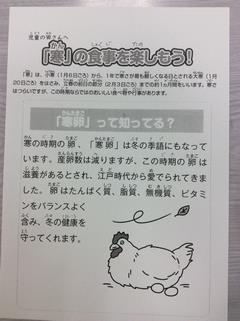 児童の皆さんへ
「寒」の食事を楽しもう！
「寒」は、小寒（1月6日ごろ）から、1年で寒さが最も厳しくなる日とされる大寒（1月
20日ごろ）をはさみ、立春の前日の節分（2月3日ごろ）までの約1か月間をいいます。寒さ
はつらいですが、この時期ならではのおいしい食べ物や行事があります。
「寒卵」って知ってる？
寒の時期の卵、「寒卵」は冬の季語にもなって
います。産卵数は減りますが、この時期の卵は
滋養があるとされ、江戸時代から愛でられてきま
した。卵はたんぱく質、脂質、無機質、ビタミ
ンをバランスよく
含み、冬の健康を
守ってくれます。